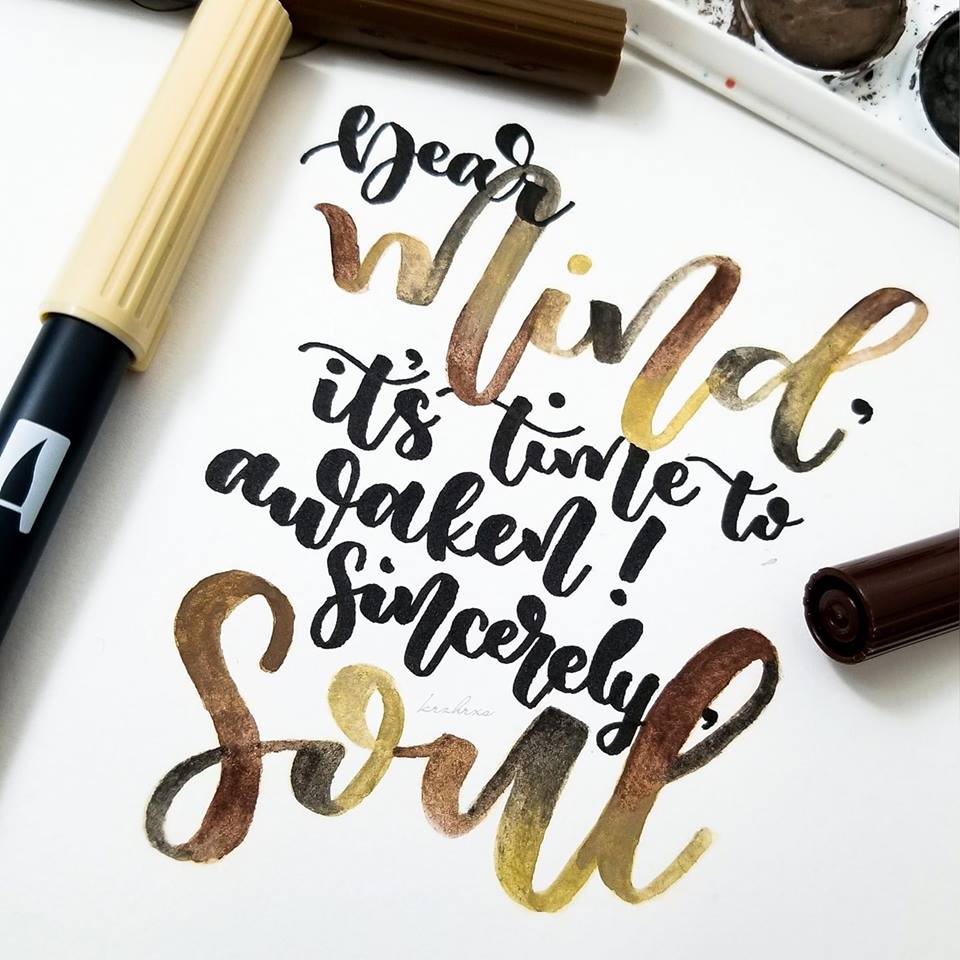 Dear
Mind,
it's time to
awaken!
Sincerely,
Soul
krzhrxs